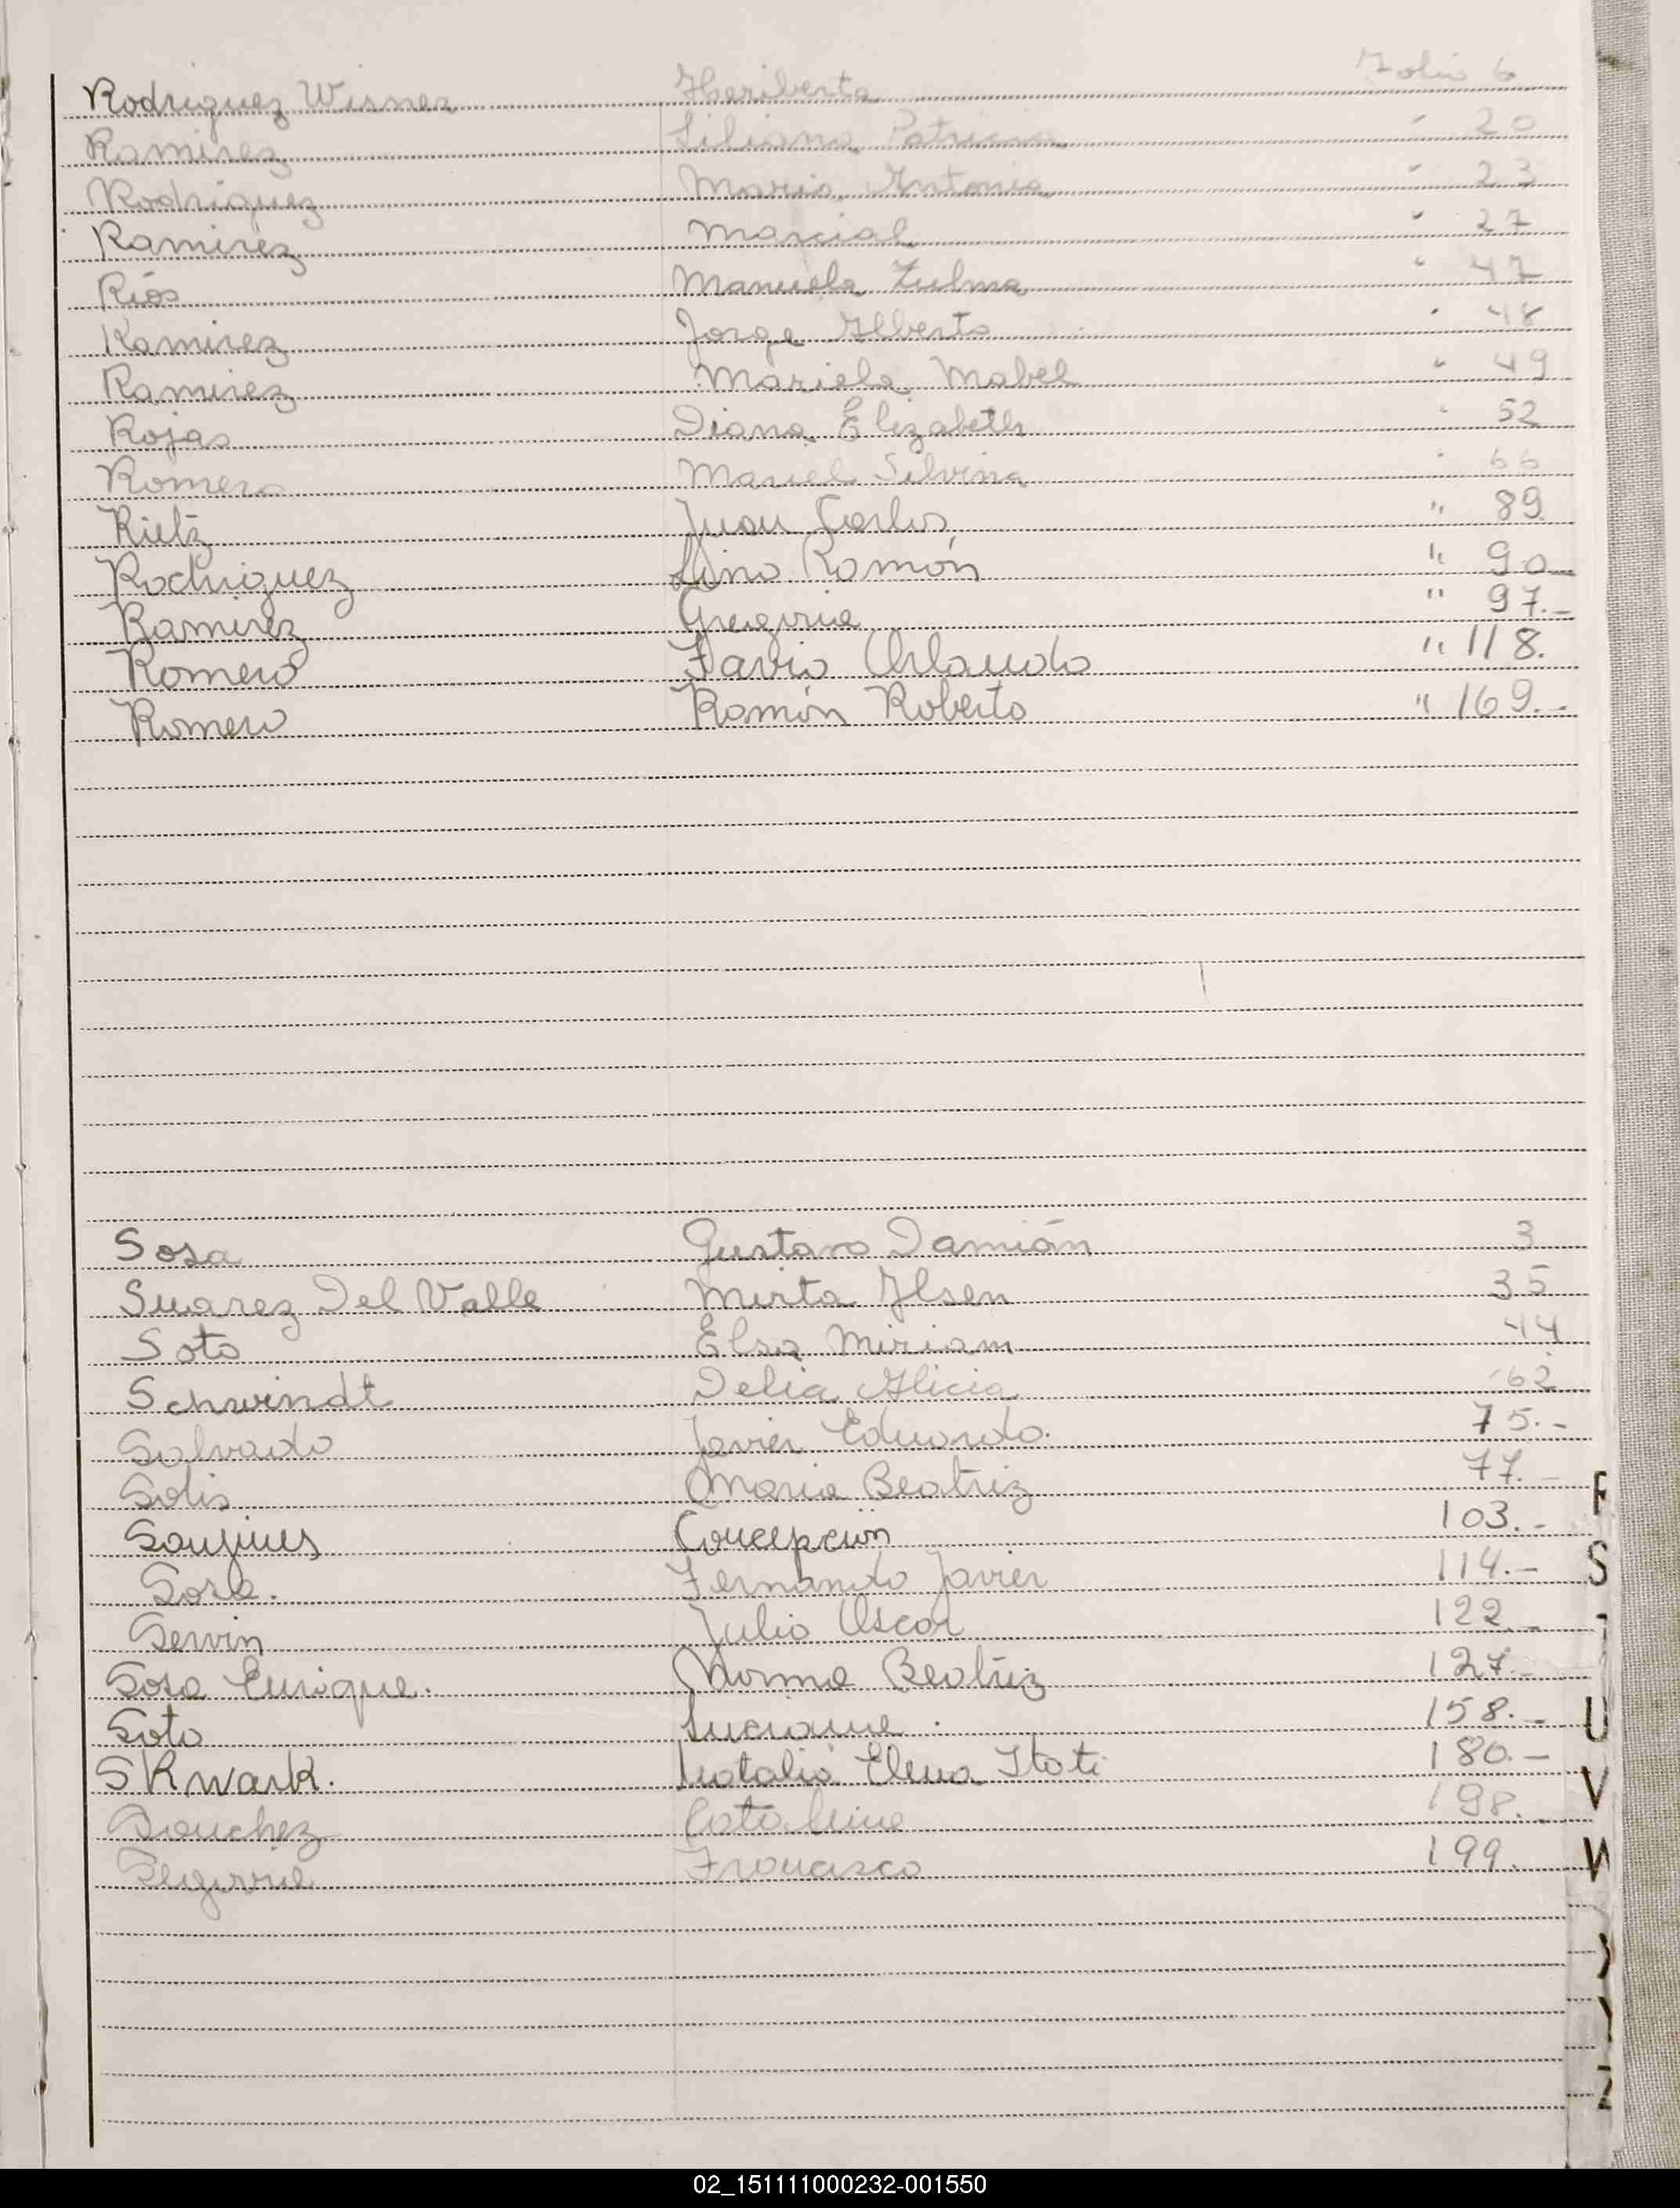 Rodriguez Wisner Heriberto Folio 6
Ramirez Liliana Patricia " 20
Rodriguez Maria Antonia " 23
Ramirez Marcial " 27
Ríos Manuela Zulma " 47
Ramirez Jorge Alberto " 48
Ramirez Mariela Mabel " 49
Rojas Diana Elizabeth " 52
Romero Mariel Silvina " 66
Rietz Juan Carlos " 89
Rodriguez Lino Ramón " 90
Ramirez Gregoria " 97.-
Romero Favio Orlando " 118.
Romero Ramón Roberto " 169.-
Sosa Gustavo Damián 3
Suarez Del Valle Mirta Ilsen 35
Soto Elsa Miriam 44
Schwindt Delia Alicia 62
Salvado Javier Eduardo. 75.-
Solis Maria Beatriz 77.-
Concepción 103.-
Sosa. Fernando Javier 114.-
Servin Julio Oscar 122.-
Sosa Enrique. Norma Beatriz 127.-
Soto Luciana. 158.-
SKwark. Natalia Elena Itati 180.-
Sanchez Catalina 198.-
Segovia Francisco 199.
S
U
V
W
Y
Z
02_151111000232-001550